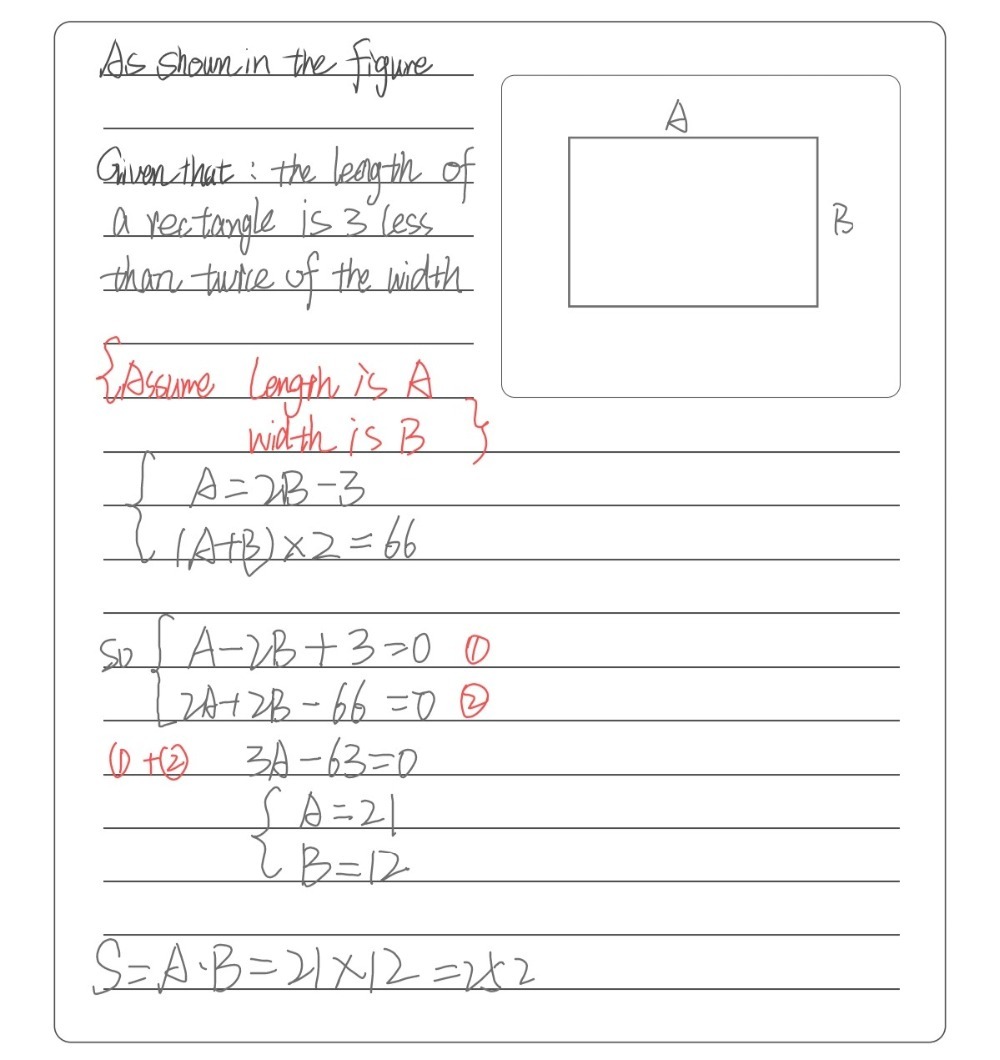 As shown in the figure
A
B
Given that: the length of
a rectangle is 3 less
than twice of the width
{Assume length is A
width is B}
{ A=2B-3
(A+B)×2=66
so { A-2B+3=0 ①
2A+2B-66=0 ②
①+② 3A-63=0
{ A=21
B=12
S=A·B=21×12=252